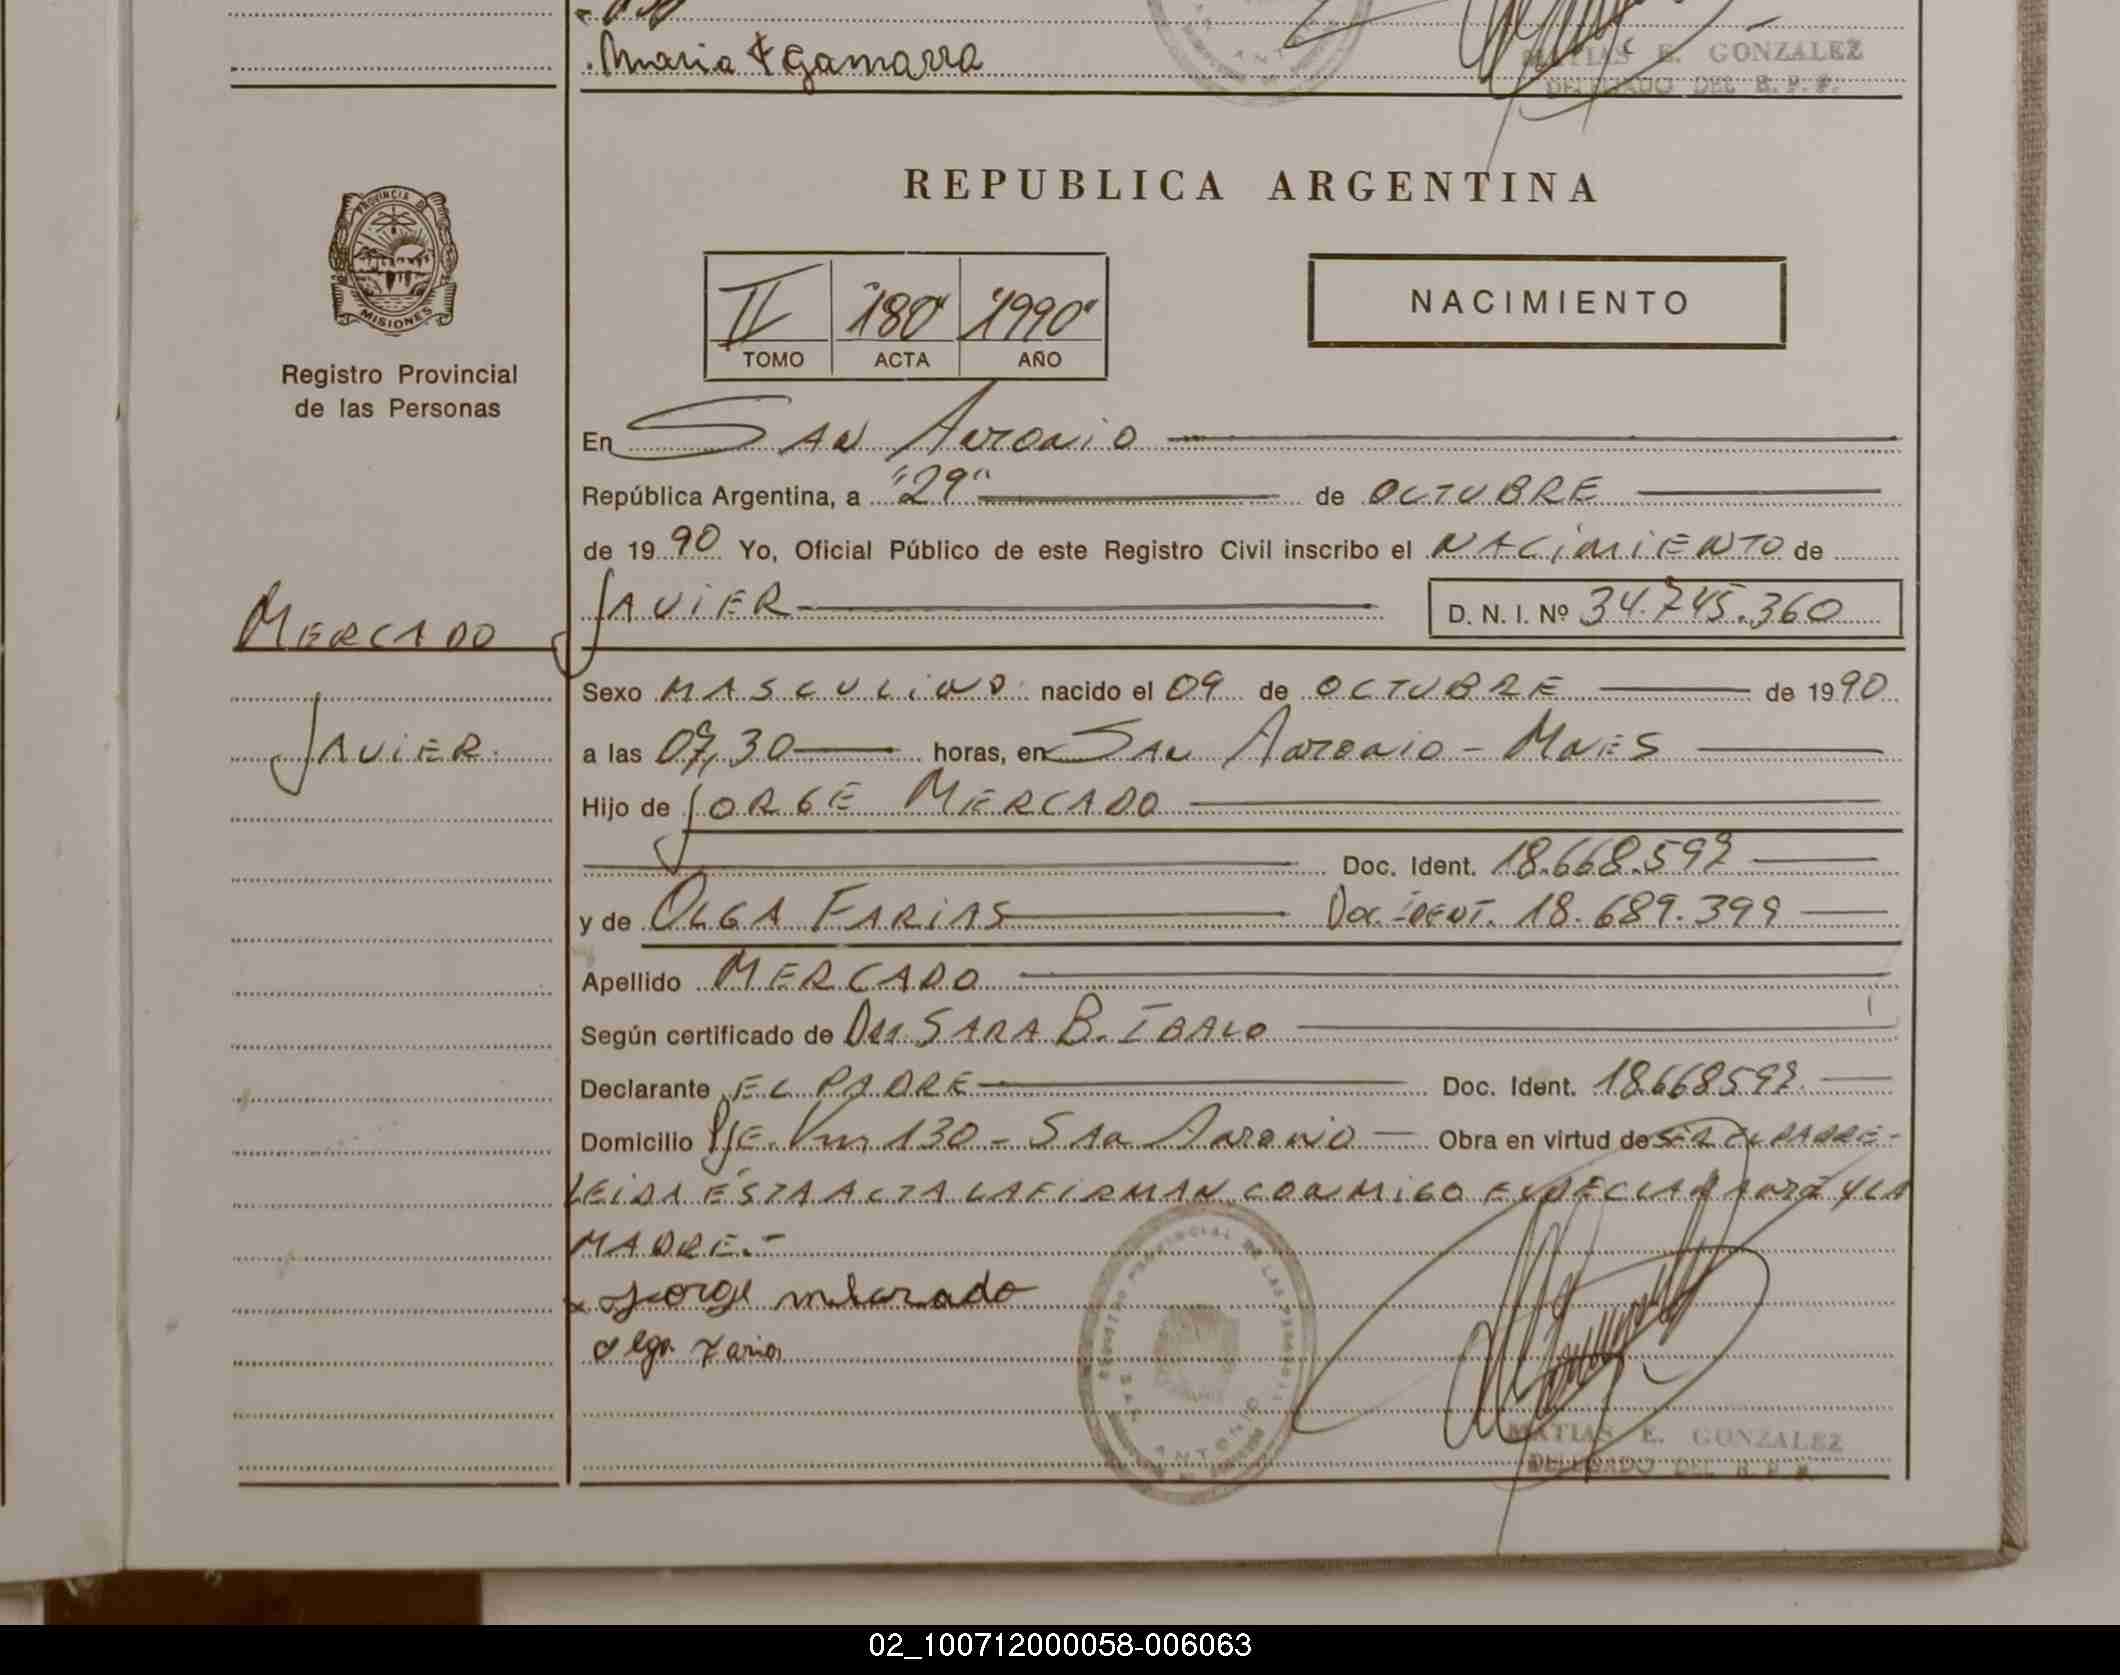 Maria F Gamarra
MATIAS E. GONZALEZ
DELEGADO DEL R. P. P.
PROVINCIA DE
MISIONES
Registro Provincial
de las Personas
REPUBLICA ARGENTINA
II "180" "1990"
TOMO ACTA AÑO
NACIMIENTO
En SAN ANTONIO
República Argentina, a "29" de OCTUBRE
de 1990 Yo, Oficial Público de este Registro Civil inscribo el NACIMIENTO de
JAVIER D. N. I. Nº 34.745.360
MERCADO
JAVIER.
Sexo MASCULINO nacido el 09 de OCTUBRE de 1990
a las 07,30 horas, en SAN ANTONIO - MNES
Hijo de JORGE MERCADO
Doc. Ident. 18.668.597
y de OLGA FARIAS Doc. IDENT. 18.689.399
Apellido MERCADO
Según certificado de Dra. SARA B. IBALO
Declarante EL PADRE Doc. Ident. 18.668597
Domicilio Pje. Km 130 - SAN ANTONIO Obra en virtud de SER EL PADRE -
LEIDA ÉSTA ACTA LA FIRMAN CONMIGO EL DECLARANTE Y LA
MADRE.-
x Jorge mercado
olga Farias
REGISTRO PROVINCIAL DE LAS PERSONAS
SAN ANTONIO
MATIAS E. GONZALEZ
DELEGADO DEL R. P. P.
02_100712000058-006063